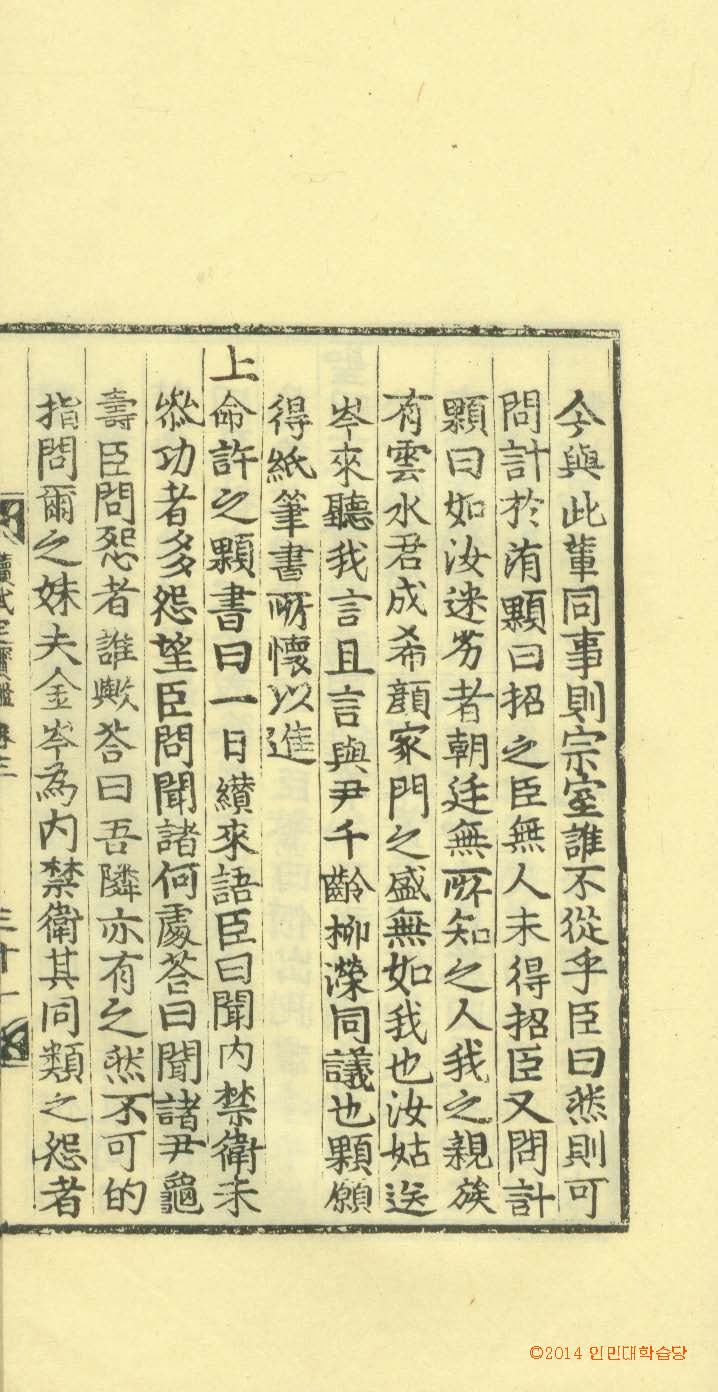 今與此輩同事則宗室誰不從乎臣曰然則可
問計於洧顆曰招之臣無人未得招臣又問計
顆曰如汝迷劣者朝廷無所知之人我之親族
有雲水君成希顔家門之盛無如我也汝姑送
岑來聽我言且言與尹千齡柳濚同議也顆願
得紙筆書所懷以進
上命許之顆書曰一日纘來語臣曰聞内禁衛未
叅功者多怨望臣問聞諸何處荅曰聞諸尹龜
壽臣問怨者誰歟荅曰吾隣亦有之然不可的
指問爾之妹夫金岑為内禁衛其同類之怨者
續武定寶鑑 卷三 三十一
©2014 인민대학습당